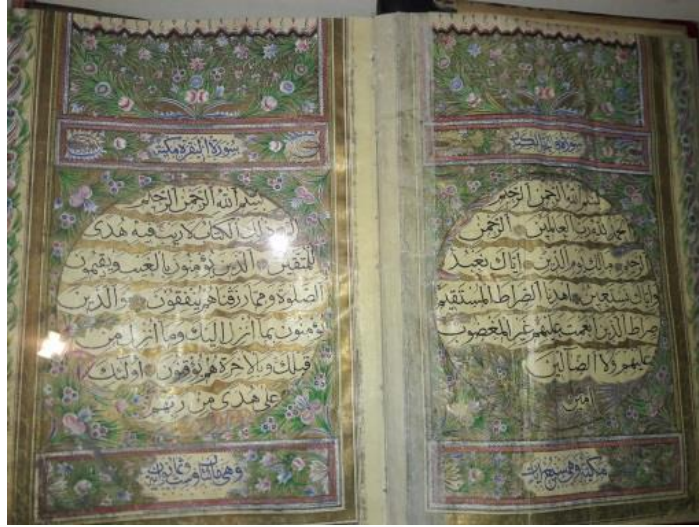 سورة فاتحة الكتاب
بسم الله الرحمن الرحيم
الحمد لله رب العالمين الرحمن
الرحيم مالك يوم الدين اياك نعبد
واياك نستعين اهدنا الصراط المستقيم
صراط الذين انعمت عليهم غير المغضوب
عليهم ولا الضالين
امين
مكية وهي سبع ايات
سورة البقرة مكية
بسم الله الرحمن الرحيم
الم ذلك الكتاب لا ريب فيه هدى
للمتقين الذين يؤمنون بالغيب ويقيمون
الصلوة ومما رزقناهم ينفقون والذين
يؤمنون بما انزل اليك وما انزل من
قبلك وبالاخرة هم يوقنون اولئك
على هدى من ربهم
وهي مائتان وست وثمانون ايات